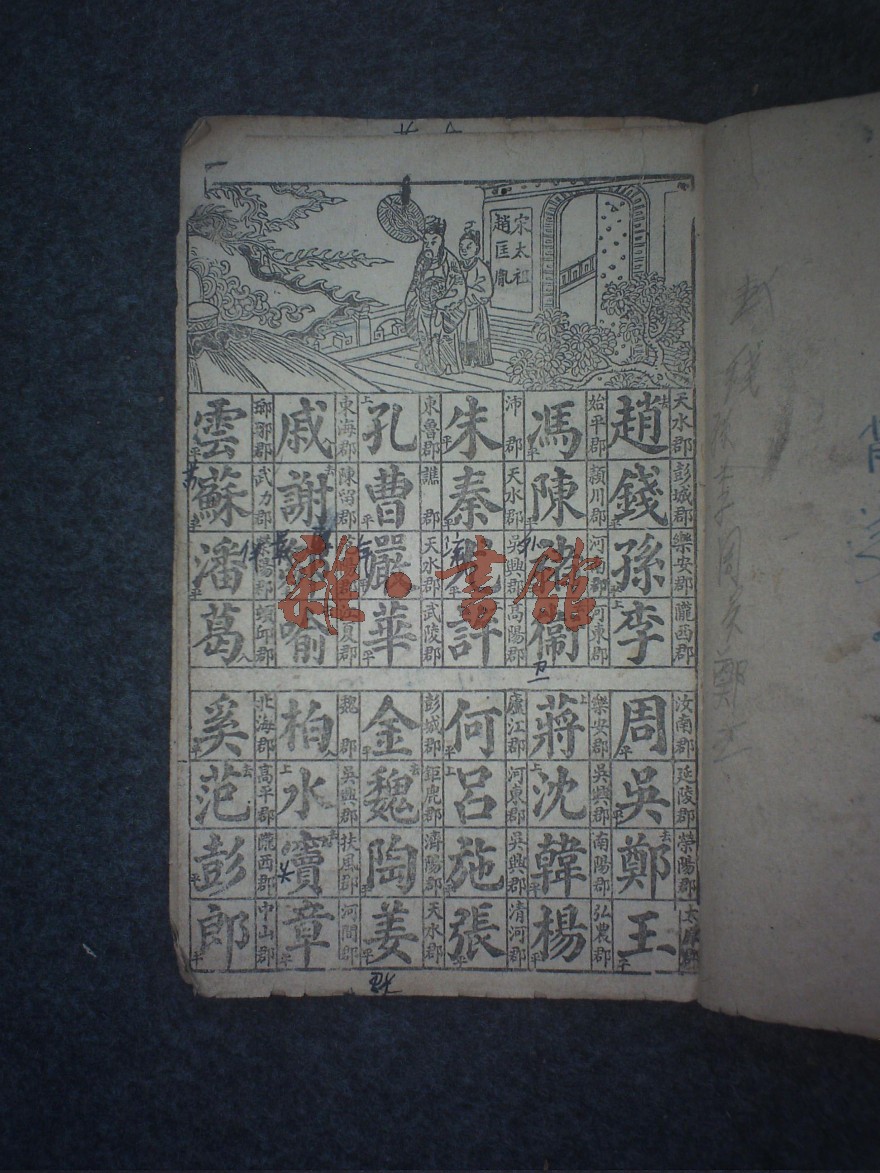 宋太祖
趙匡胤
天水郡 彭城郡 樂安郡 隴西郡
趙錢孫李
始平郡 潁川郡 河南郡 河東郡
馮陳衞
沛郡 天水郡 吳興郡 高陽郡
朱秦尤許
東魯郡 譙郡 天水郡 武陵郡
孔曹嚴華
東海郡 陳留郡 江夏郡
戚謝喻
瑯琊郡 武力郡 滎陽郡 頓邱郡
雲蘇潘葛
汝南郡 延陵郡 滎陽郡 太原郡
周吳鄭王
樂安郡 吳興郡 南陽郡 弘農郡
蔣沈韓楊
廬江郡 河東郡 吳興郡 清河郡
何呂施張
彭城郡 鉅鹿郡 濟陽郡 天水郡
金魏陶姜
魏郡 吳興郡 扶風郡 河間郡
柏水竇章
北海郡 高平郡 隴西郡 中山郡
奚范彭郎
雜·書館